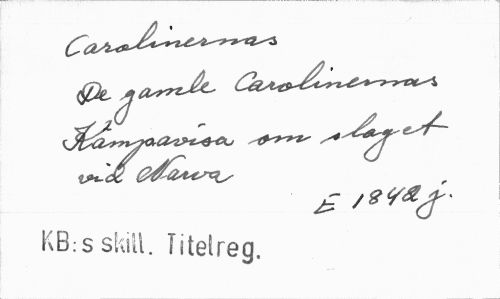 Carolinernas
De gamle Carolinernas
Kämpavisa om slaget
vid Narva
E 1842 j.
KB:s skill. Titelreg.